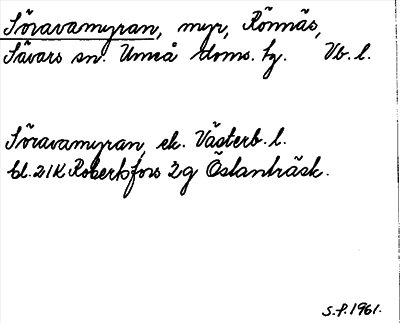 Söravamyran, myr, Rönnäs,
Sävars sn. Umeå doms. tg. Vb. l.
Söravamyran, ek. Västerb. l.
bl. 21K Robertsfors 2g Östanträsk.
S.P. 1961.